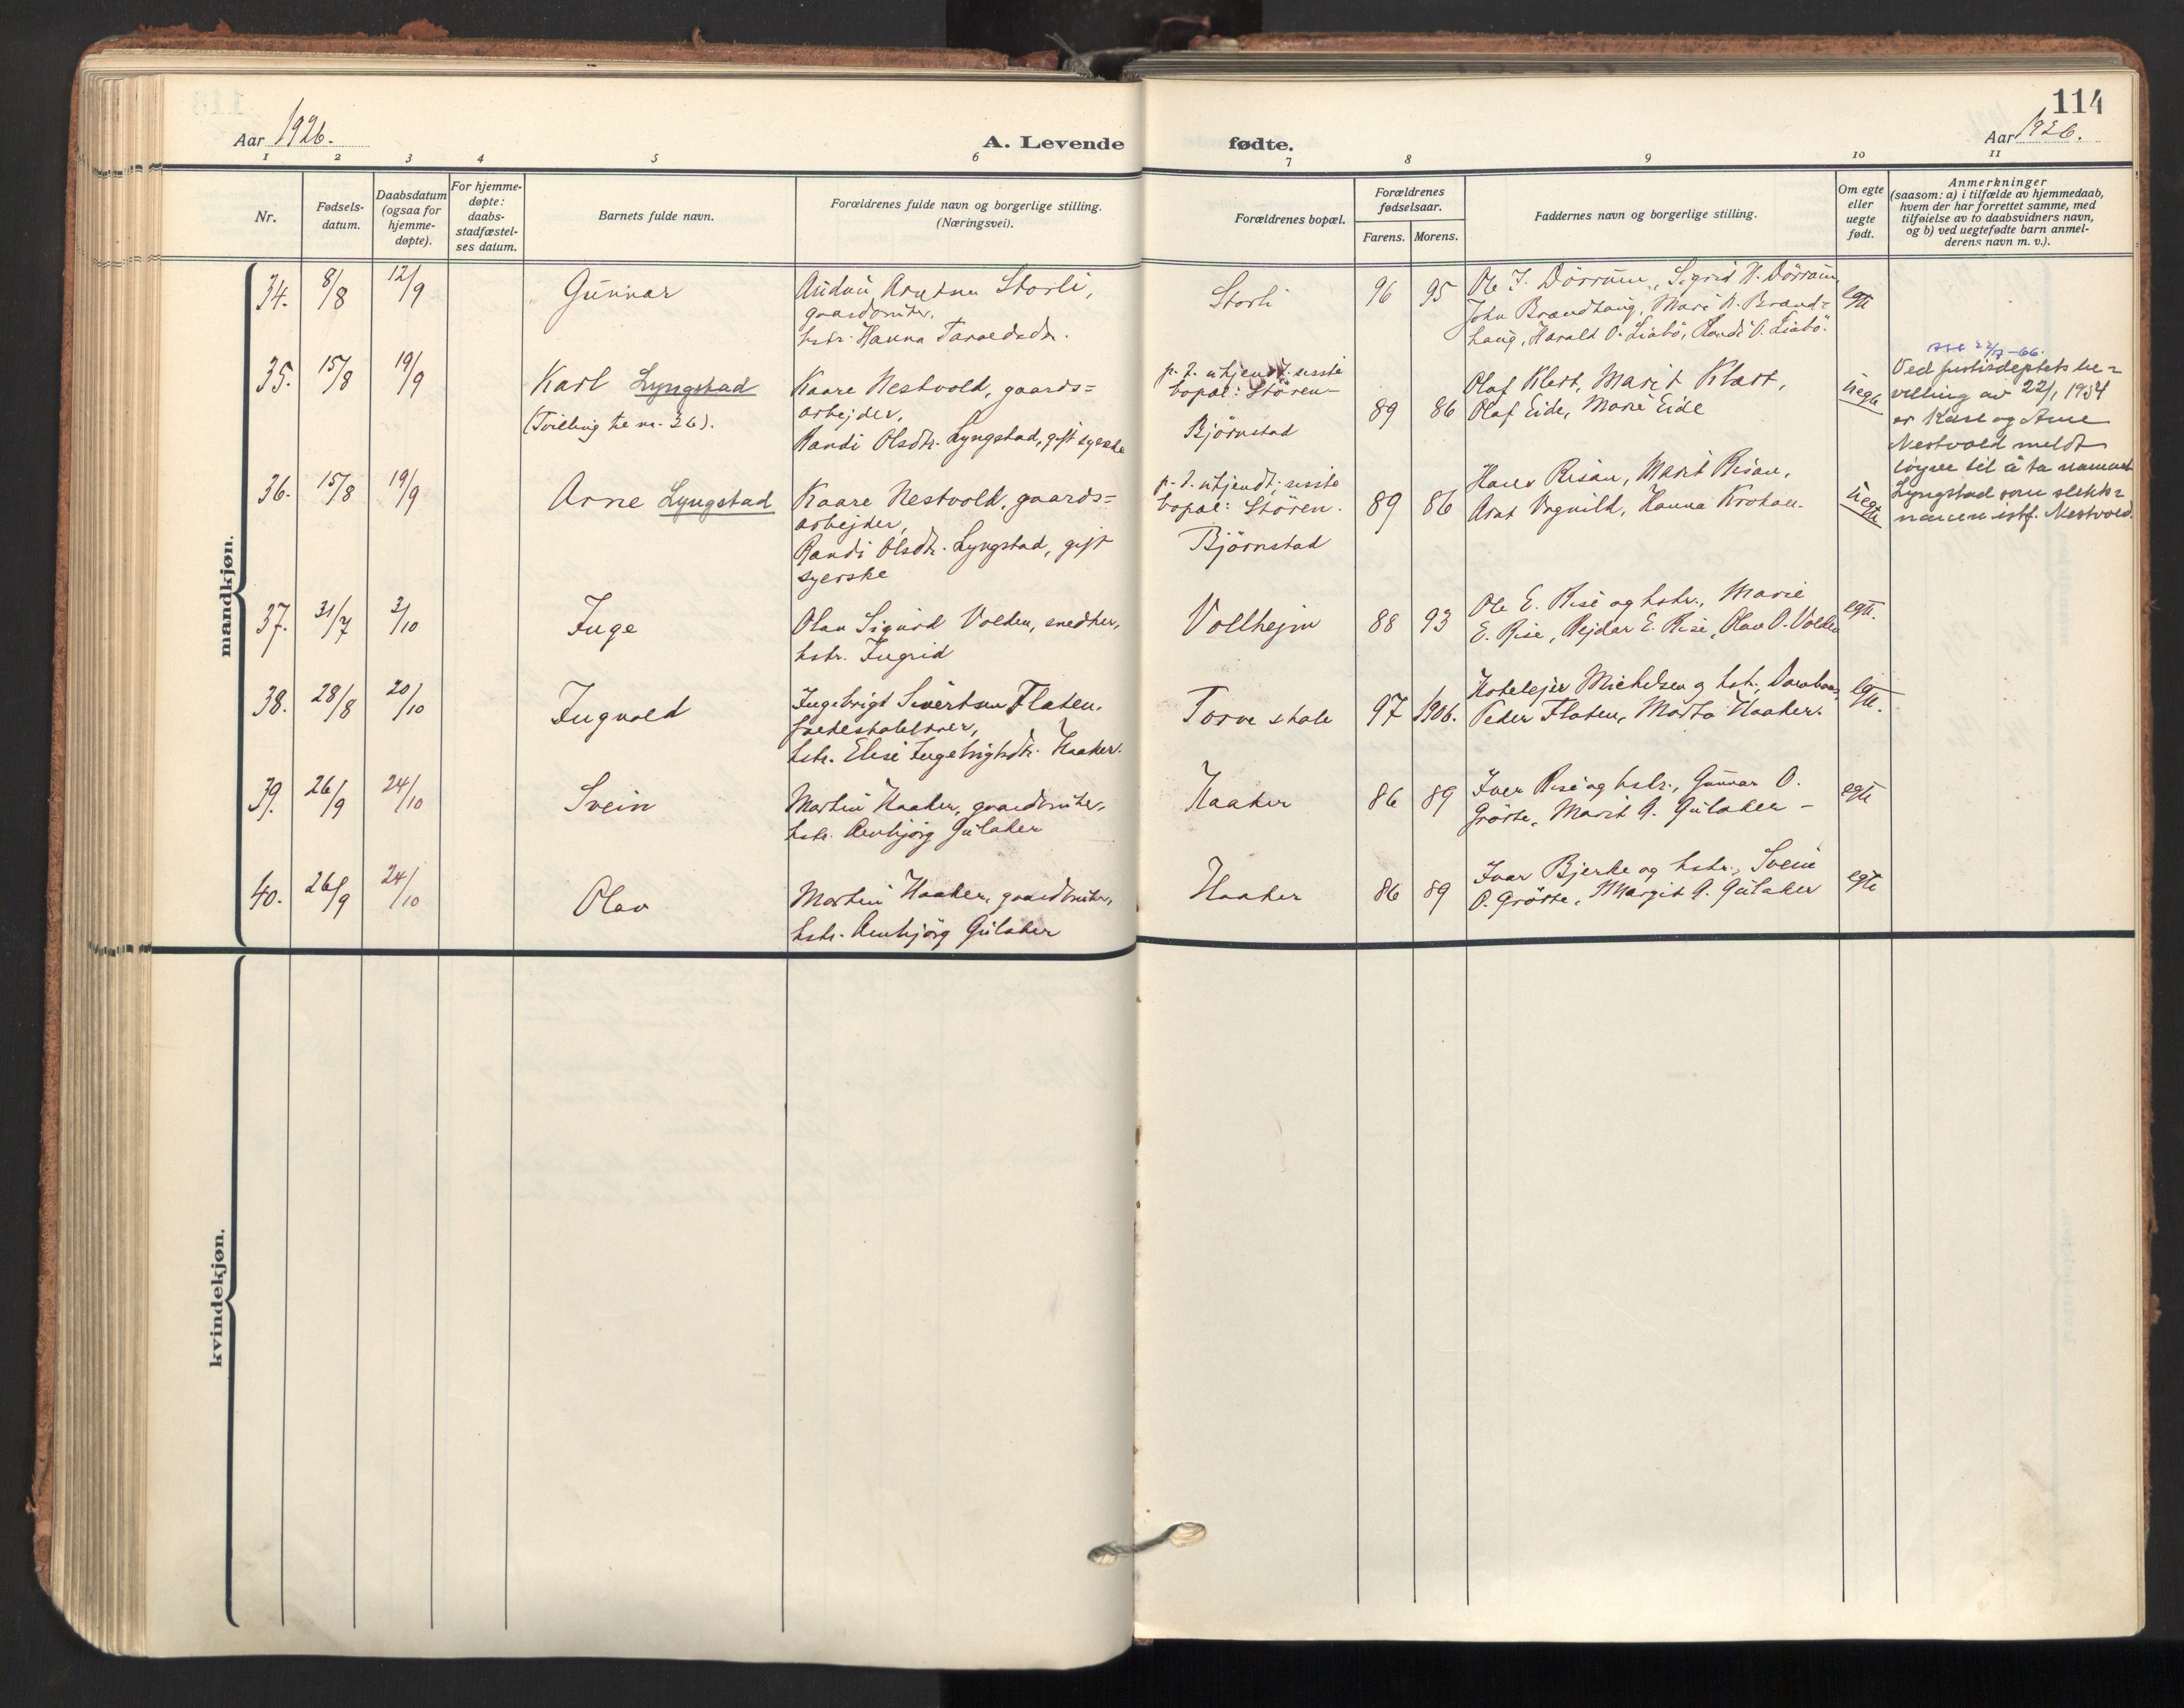 114
Aar 1926.
A. Levende fødte.
Aar 1926.
1 2 3 4 5 6 7 8 9 10 11
Nr.
Fødsels-
datum.
Daabsdatum
(ogsaa for
hjemme-
døpte).
For hjemme-
døpte:
daabs-
stadfæstel-
ses datum.
Barnets fulde navn.
Forældrenes fulde navn og borgerlige stilling.
(Næringsvei).
Forældrenes bopæl.
Forældrenes
fødselsaar.
Farens. Morens.
Faddernes navn og borgerlige stilling.
Om egte
eller
uegte
født.
Anmerkninger
(saasom: a) i tilfælde av hjemmedaab,
hvem der har forrettet samme, med
tilføielse av to daabsvidners navn,
og b) ved uegtefødte barn anmel-
derens navn m. v.).
mandkjøn.
34. 8/8 12/9 Gunnar
Storli,
gaardbruker,
hstr. Hanna
Storli
96 95
Ole J. Dörrum, Sigrid N. Dörrum,
John Brandhaug, Mari N. Brand=
haug, Harald O. Liabö, Randi O. Liabö.
egte
35. 15/8 19/9 Karl Lyngstad
(Tvilling til nr. 36).
Kaare Nestvold, gaards=
arbejder,
Randi Olsdtr. Lyngstad, gift syerske
p. t. ukjendt, sisste
bopæl: Støren-
Bjørnstad
89 86
Olaf Klett, Marit Klett,
Olaf Eide, Marie Eide
uegte
22/7-66.
Ved justisdeptets be=
villing av 22/1 1934
er Karl og Arne
Nestvold meldt
løyve til å ta namnet
Lyngstad som slekts=
namn istf. Nestvold.
36. 15/8 19/9 Arne Lyngstad
Kaare Nestvold, gaards=
arbejder,
Randi Olsdtr. Lyngstad, gift
syerske
p. t. ukjendt, sisste
bopæl: Støren.
Bjørnstad
89 86
Hans Risan, Marit Risan,
Arnt Vognild, Hanna Krokan.
uegte
37. 31/7 3/10 Inge
Olav Sigurd Volden, snedker,
hstr. Ingrid
Vollhejm
88 93
Ole E. Rise og hstr., Marie
E. Rise, Rejdar E. Rise, Olav O. Volden
egte.
38. 28/8 20/10 Ingvald
Ingebrigt Sivertsen Flaten,
hstr. Elise Ingebrigtsdtr. Haaker.
Torve
97 1906.
Hotelejer Michelsen og hstr.,
Peder Flaten, Marta Haaker.
egte.
39. 26/9 24/10 Svein
Martin Haaker, gaardbruker,
hstr. Arnbjörg Gulaker
Haaker
86 89
Iver Rise og hstr., Gunnar O.
Grötte, Marit A. Gulaker -
egte
40. 26/9 24/10 Olav
Martin Haaker, gaardbruker,
hstr. Arnbjörg Gulaker
Haaker
86 89
Ivar Bjerke og hstr., Svein
O. Grötte, Margit A. Gulaker
egte
kvindekjøn.